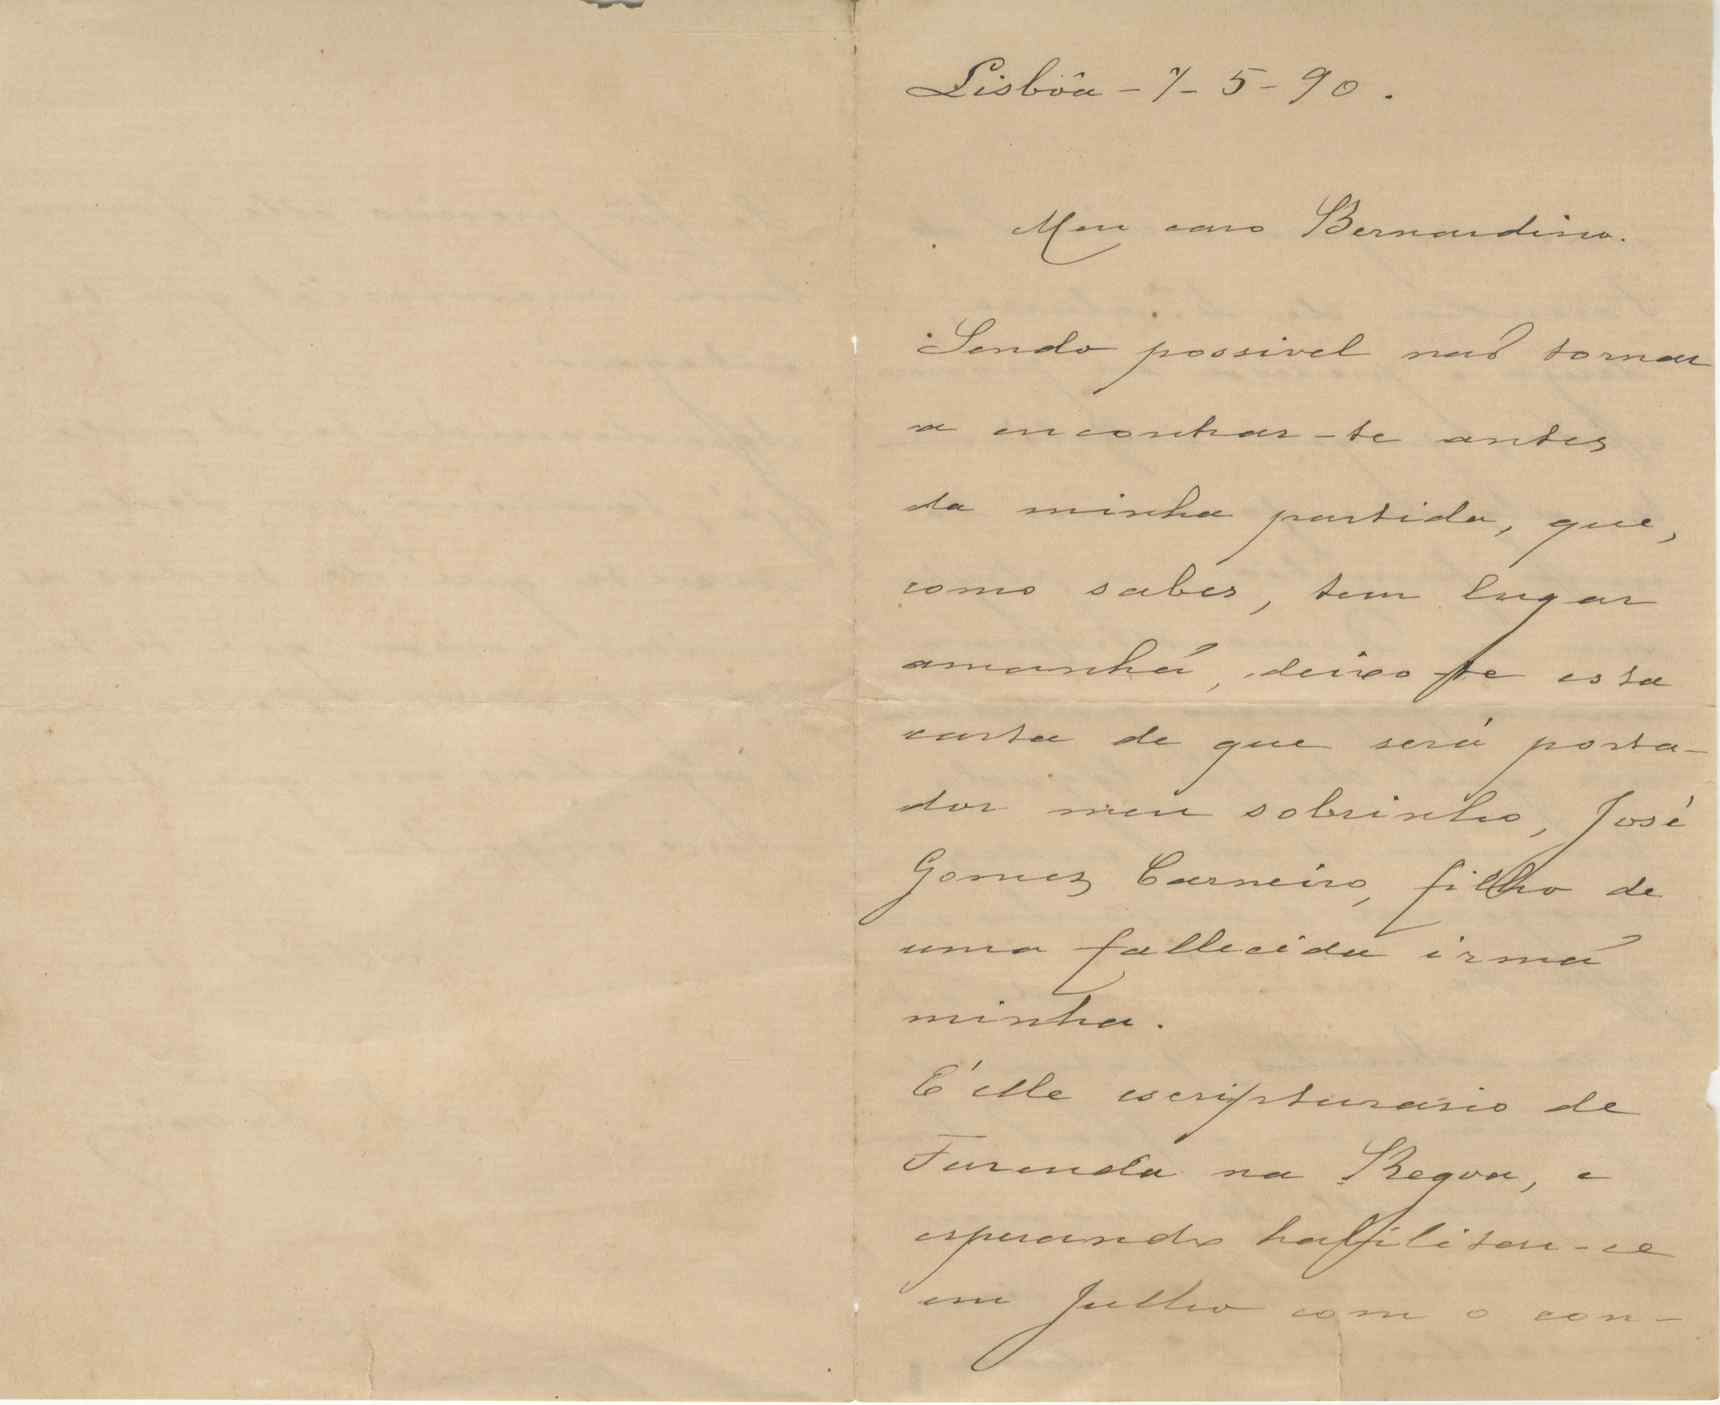 Lisbôa - 7 - 5 - 90.
Meu caro Bernardino.
Sendo possivel não tornar
a encontrar-te antes
da minha partida, que,
como sabes, tem lugar
amanhã, deixo-te esta
carta de que será porta-
dor meu sobrinho, José
Gomes Carneiro, filho de
uma fallecida irmã
minha.
E' elle escripturario de
Fazenda na Regoa, e
esperando habilitar-se
em Julho com o con-